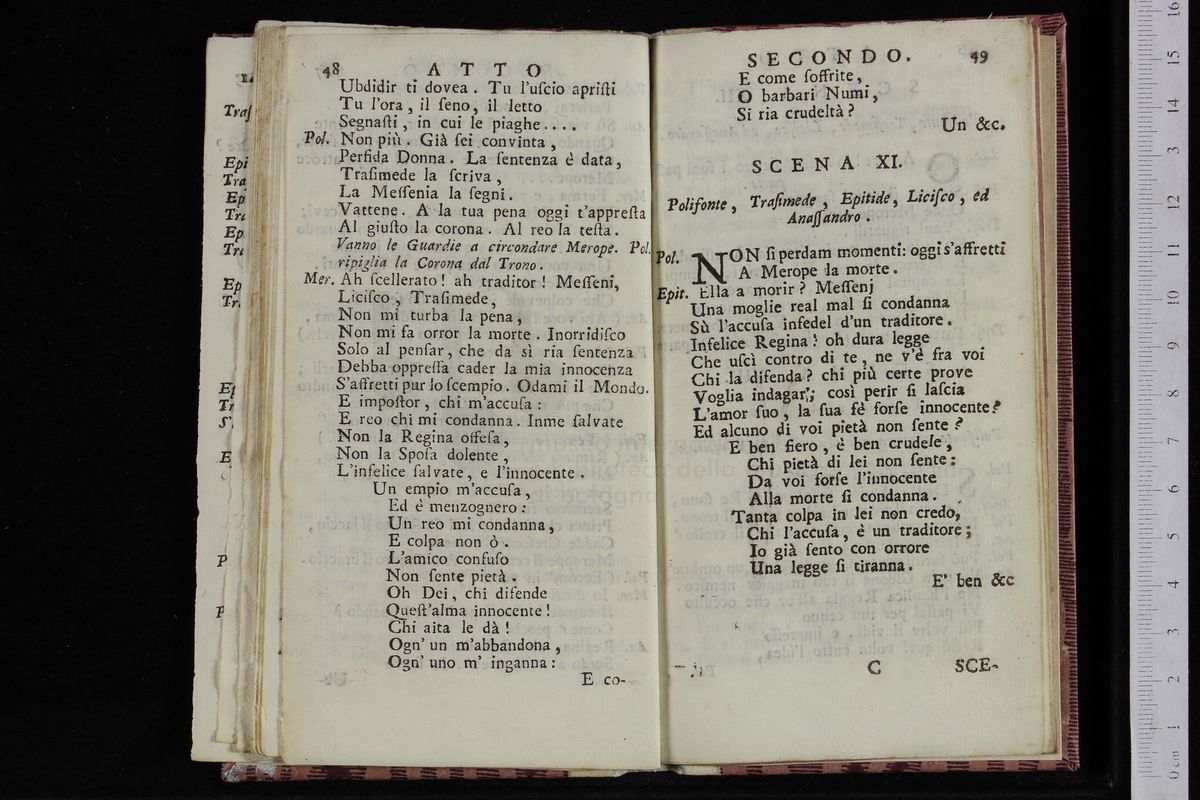 48 ATTO
Ubdidir ti dovea. Tu l'uſcio apriſti
Tu l'ora, il ſeno, il letto
Segnaſti, in cui le piaghe....
Pol. Non più. Già ſei convinta,
Perfida Donna. La ſentenza è data,
Traſimede la ſcriva,
La Meſſenia la ſegni.
Vattene. A la tua pena oggi t'appreſta
Al giuſto la corona. Al reo la teſta.
Vanno le Guardie a circondare Merope. Pol.
ripiglia la Corona dal Trono.
Mer. Ah ſcellerato! ah traditor! Meſſeni,
Liciſco, Traſimede,
Non mi turba la pena,
Non mi fa orror la morte. Inorridiſco
Solo al penſar, che da sì ria ſentenza
Debba oppreſſa cader la mia innocenza
S'affretti pur lo ſcempio. Odami il Mondo.
E impoſtor, chi m'accuſa:
E reo chi mi condanna. Inme ſalvate
Non la Regina offeſa,
Non la Spoſa dolente,
L'infelice ſalvate, e l'innocente.
Un empio m'accuſa,
Ed è menzognero:
Un reo mi condanna,
E colpa non ò.
L'amico confuſo
Non ſente pietà.
Oh Dei, chi difende
Queſt'alma innocente!
Chi aita le dà!
Ogn' un m'abbandona,
Ogn' uno m' inganna:
E co-
SECONDO. 49
E come ſoffrite,
O barbari Numi,
Si ria crudeltà?
Un &c.
SCENA XI.
Polifonte, Traſimede, Epitide, Liciſco, ed
Anaſſandro.
Pol. NON ſi perdam momenti: oggi s'affretti
A Merope la morte.
Epit. Ella a morir? Meſſenj
Una moglie real mal ſi condanna
Sù l'accuſa infedel d'un traditore.
Infelice Regina! oh dura legge
Che uſcì contro di te, ne v'è fra voi
Chi la difenda? chi più certe prove
Voglia indagar; così perir ſi laſcia
L'amor ſuo, la ſua fè forſe innocente?
Ed alcuno di voi pietà non ſente?
E ben fiero, è ben crudele,
Chi pietà di lei non ſente:
Da voi forſe l'innocente
Alla morte ſi condanna.
Tanta colpa in lei non credo,
Chi l'accuſa, è un traditore;
Io già ſento con orrore
Una legge ſi tiranna.
E' ben &c
C SCE-